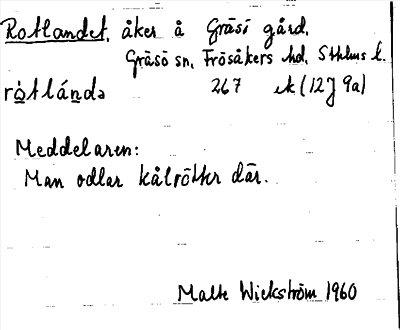 Rotlandet, åker å Gräsö gård,
Gräsö sn, Frösåkers hd, Sthlms l.
rò̱tlánd̲ə 267 ek (12J 9a)
Meddelaren:
Man odlar kålrötter där.
Malte Wickström 1960